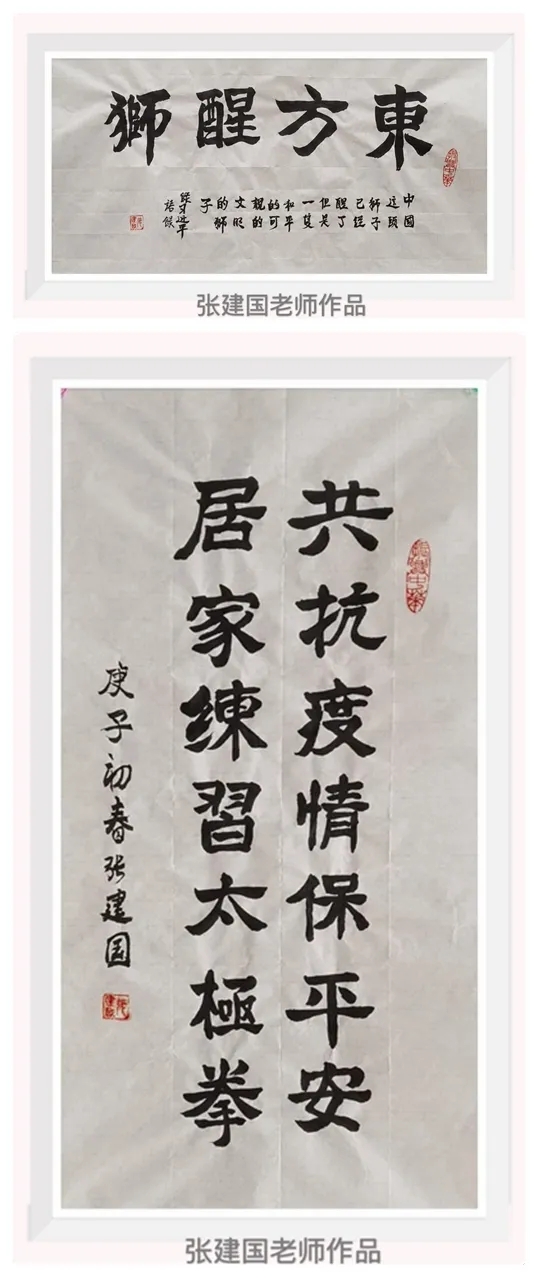 東方醒獅
中国这头狮子已经醒了但是一隻和平的可親的文明的狮子
习近平
语录
张建国老师作品
共抗疫情保平安
居家練習太極拳
庚子初春张建国
张建国老师作品